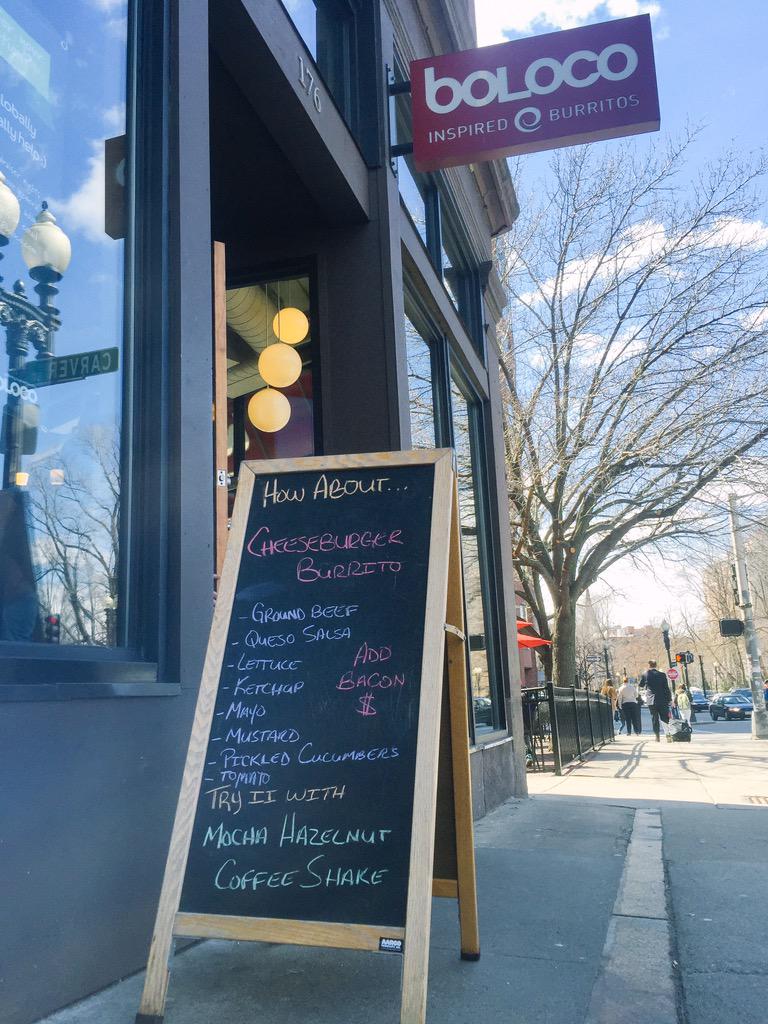 lobally
ally help:)
176
boloco
INSPIRED BURRITOS
CARVER
HOW ABOUT...
CHEESEBURGER
BURRITO
- GROUND BEEF
- QUESO SALSA
- LETTUCE
- KETCHUP
- MAYO
- MUSTARD
- PICKLED CUCUMBERS
- TOMATO
ADD
BACON
$
TRY IT WITH
MOCHA HAZELNUT
COFFEE SHAKE
AARCO